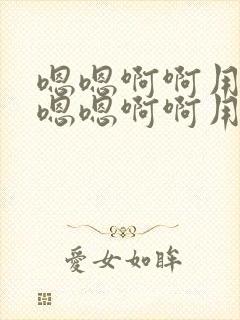 嗯嗯啊啊用
嗯嗯啊啊用
愛女如眸